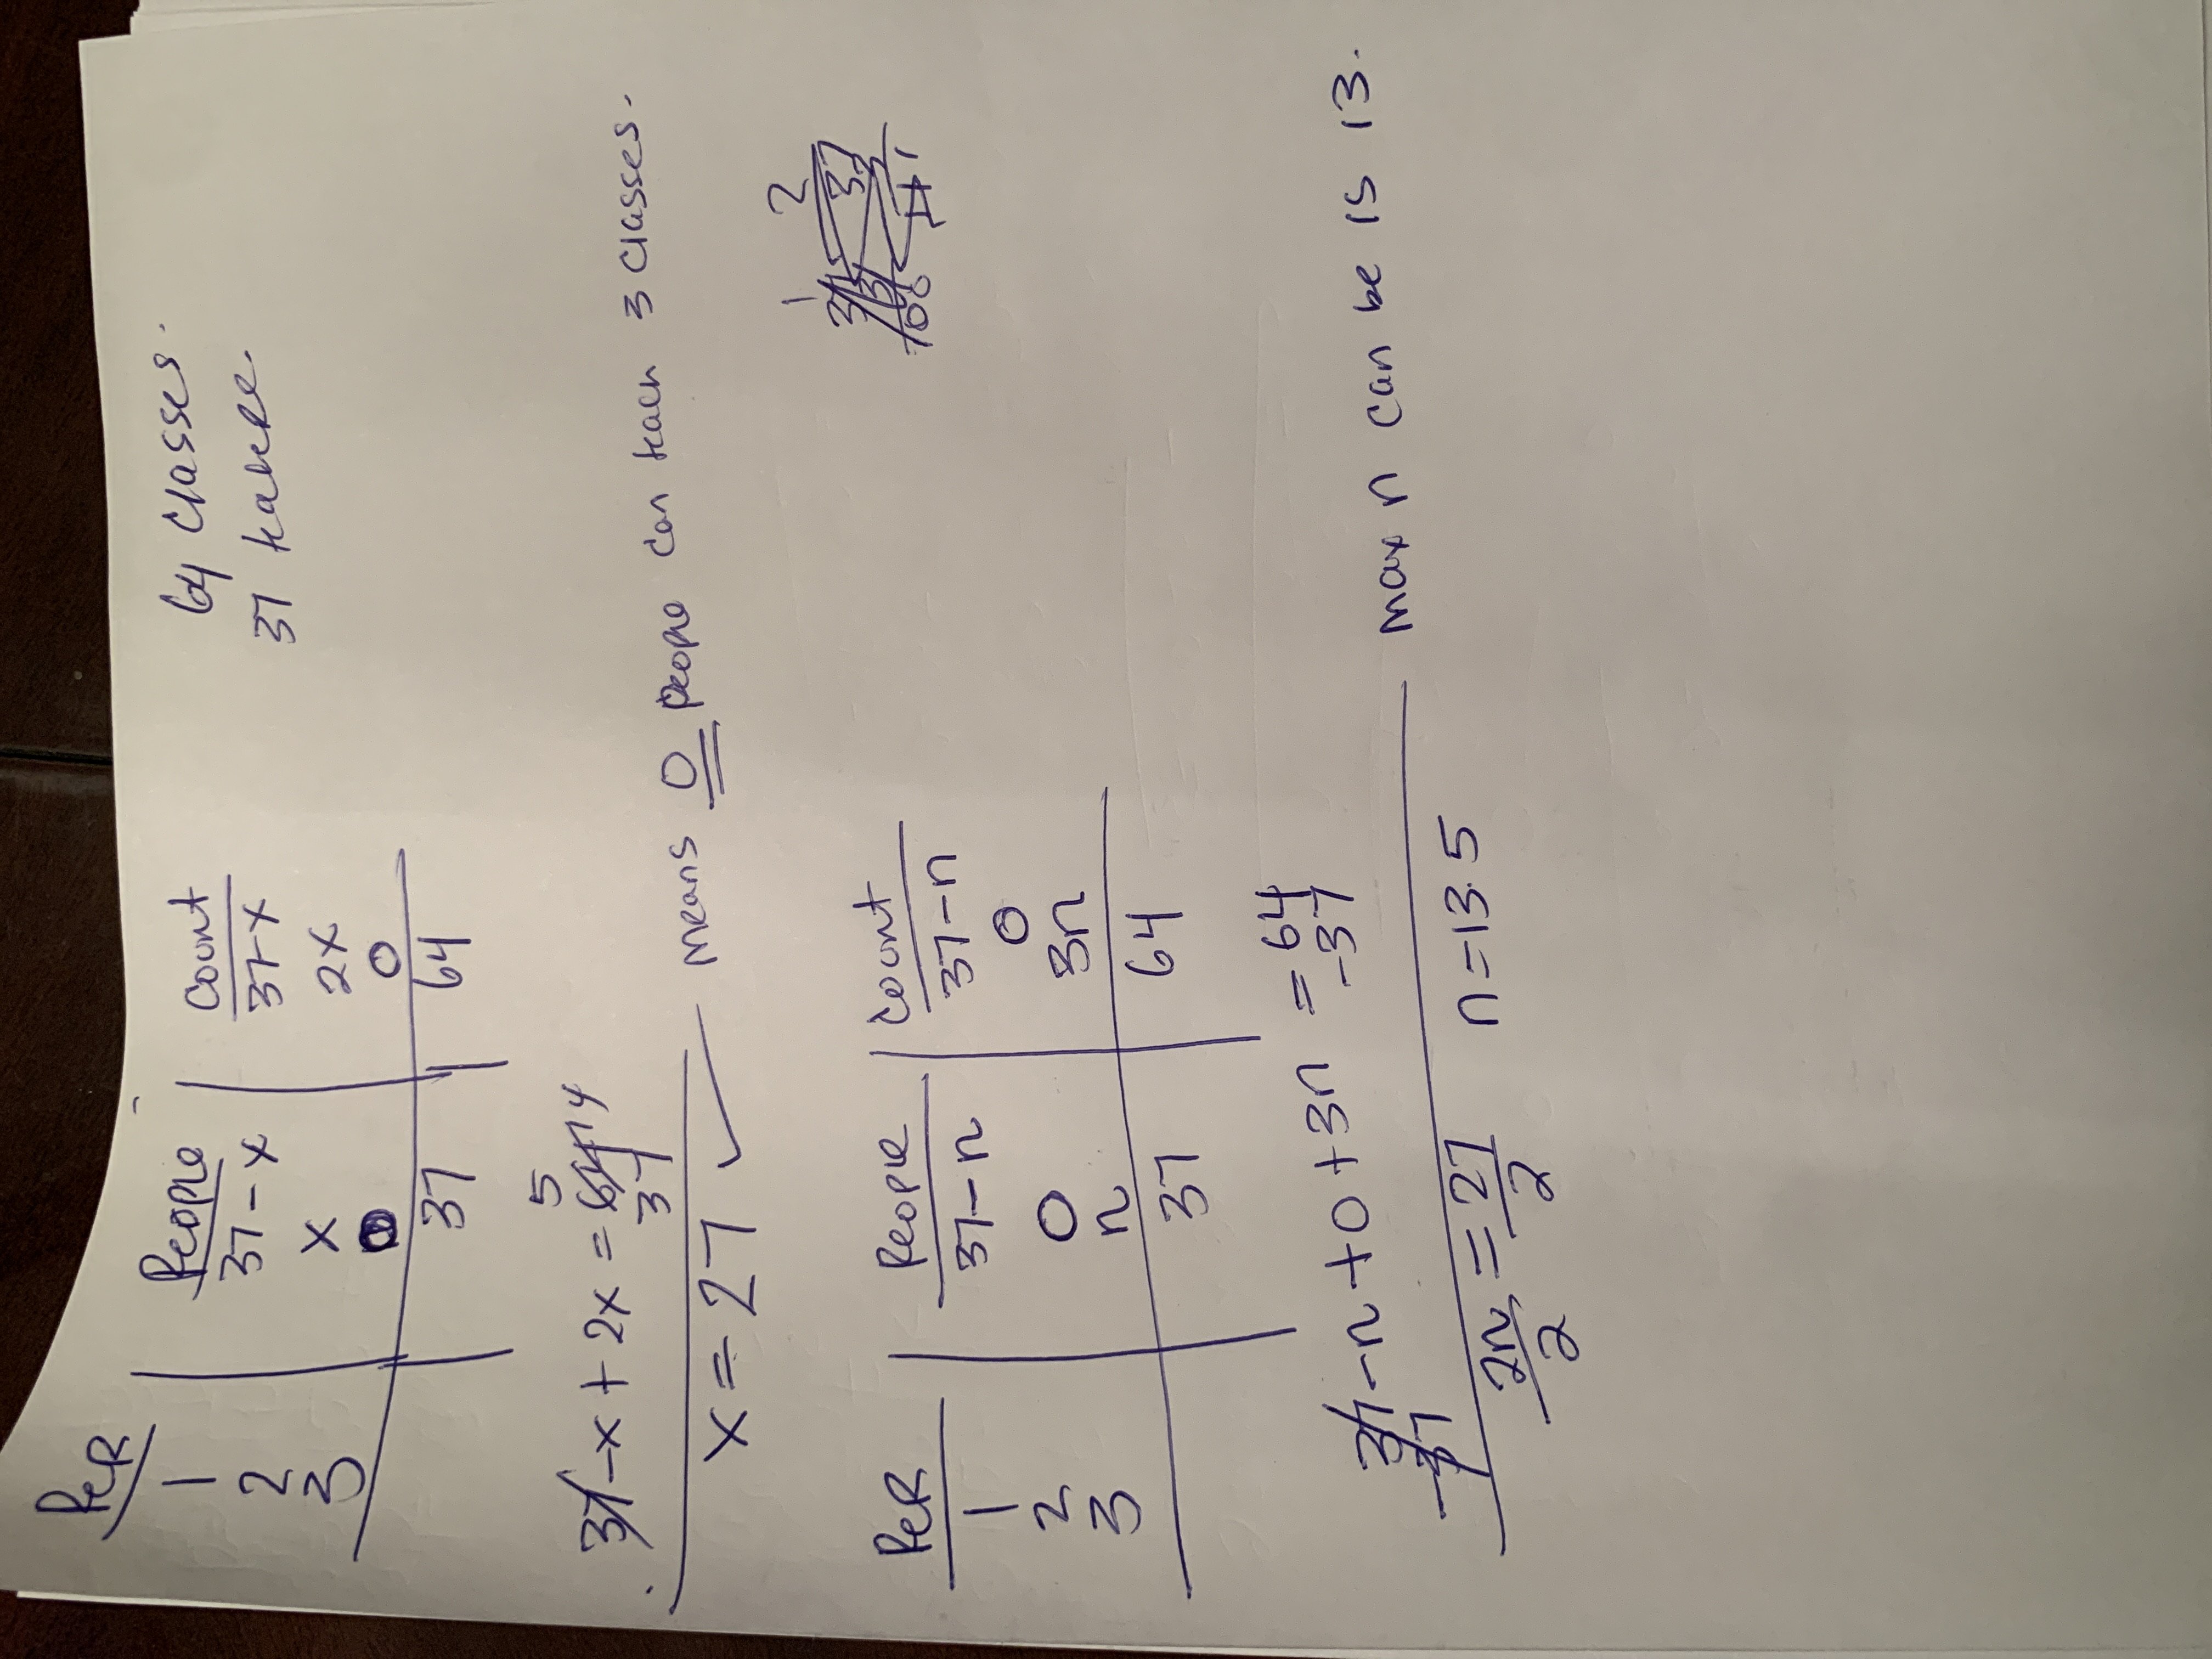 64 classes.
37
Per | People | Count
1 | 37-x | 37-x
2 | x | 2x
3 | 0 | 0
37 | 64
37-x+2x = 64
37
x = 27 means 0 people can teach 3 classes.
Per | People | Count
1 | 37-n | 37-n
2 | 0 | 0
3 | n | 3n
37 | 64
37-n+0+3n = 64
-37 -37
2n = 27 n=13.5 max n can be is 13.
2 2